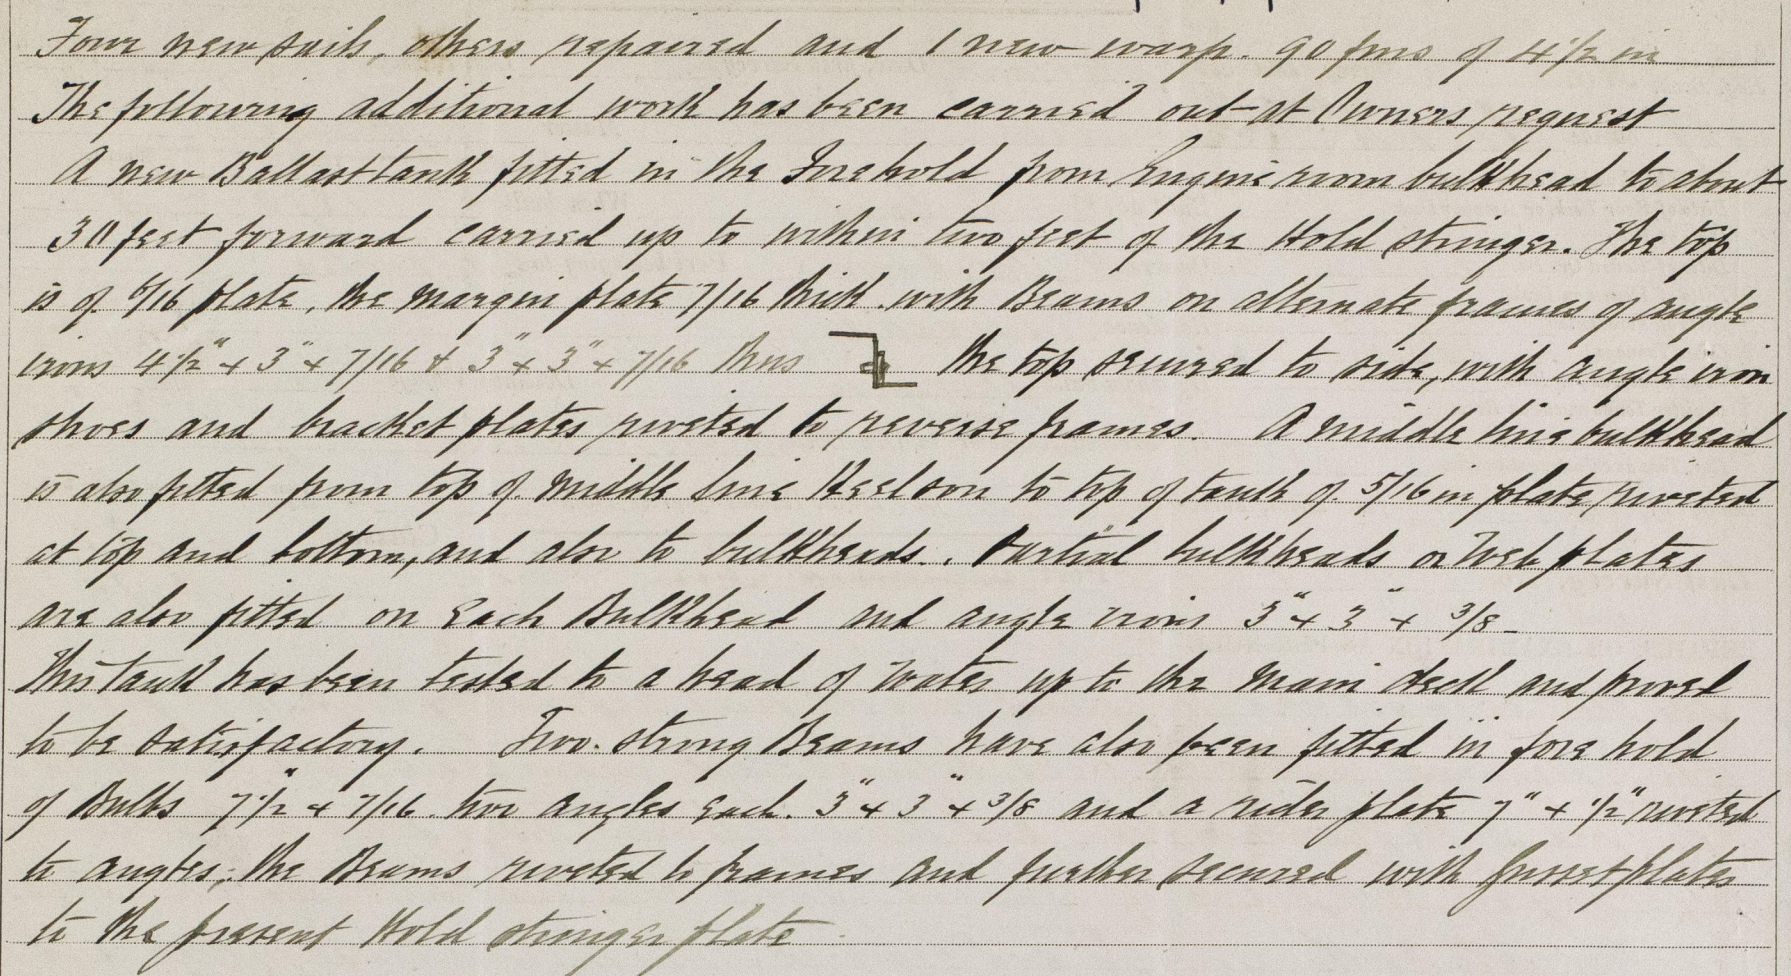 Four new sails, others repaired and 1 new warp. 90 fms of 4 1/2 in
The following additional work has been carried out at Owners request
A new Ballast tank fitted in the Forehold from Engine room bulkhead to about
30 feet forward carried up to within two feet of the Hold stringer. The top
is of 6/16 plate, the margin plate 7/16 thick with Beams on alternate frames of angle
irons 4 1/2" + 3" + 7/16 & 3" + 3" + 7/16 thus the top secured to side, with angle iron
shoes and bracket plates riveted to reverse frames. A middle line bulkhead
is also fitted from top of middle line Keelson to top of tank of 5/16 in plate riveted
at top and bottom, and also to bulkheads. Partial bulkheads or Web plates
are also fitted on each Bulkhead and angle irons 3" + 3" + 3/8
This tank has been tested to a head of water up to the main deck and proved
to be satisfactory. Two strong Beams have also been fitted in fore hold
of Bulbs 7 1/2" + 7/16 two angles each. 3" + 3" + 3/8 and a rider plate 7" + 1/2" riveted
to angles, the Beams riveted to frames and further secured with gusset plates
to the present Hold stringer plate